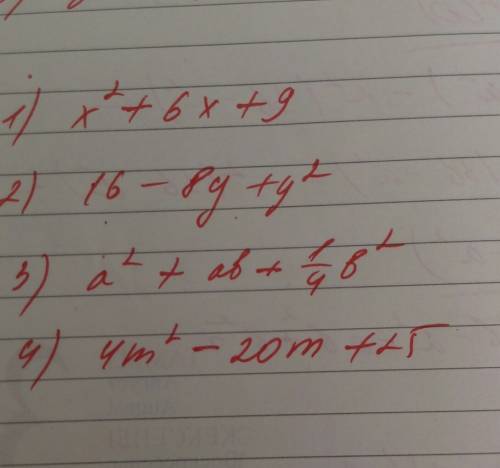 1) x² + 6x + 9
2) 16 - 8y + y²
3) a² + ab + 1/4 b²
4) 4m² - 20m + 25